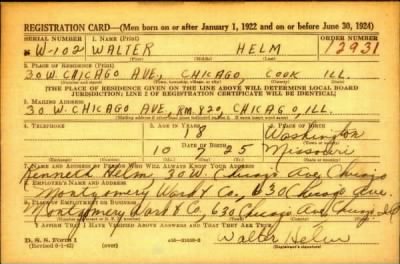 REGISTRATION CARD—(Men born on or after January 1, 1922 and on or before June 30, 1924)
SERIAL NUMBER 1. NAME (Print) ORDER NUMBER
W-102 WALTER HELM 12931
(First) (Middle) (Last)
2. PLACE OF RESIDENCE (Print)
30 W. CHICAGO AVE, CHICAGO, COOK ILL.
(Number and street) (Town, township, village, or city) (County) (State)
[THE PLACE OF RESIDENCE GIVEN ON THE LINE ABOVE WILL DETERMINE LOCAL BOARD
JURISDICTION; LINE 2 OF REGISTRATION CERTIFICATE WILL BE IDENTICAL]
3. MAILING ADDRESS
30 W. CHICAGO AVE, RM. 820, CHICAGO, ILL.
4. TELEPHONE 5. AGE IN YEARS 6. PLACE OF BIRTH
18 Washington
DATE OF BIRTH
10 7 25 Missouri
(Exchange) (Number) (Mo.) (Day) (Yr.) (State or country)
7. NAME AND ADDRESS OF PERSON WHO WILL ALWAYS KNOW YOUR ADDRESS
Kenneth Helm, 30 W. Chicago Ave, Chicago
8. EMPLOYER'S NAME AND ADDRESS
Montgomery Ward & Co., 630 Chicago Ave.
9. PLACE OF EMPLOYMENT OR BUSINESS
Montgomery Ward & Co, 630 Chicago Ave, Chicago, Ill
I AFFIRM THAT I HAVE VERIFIED ABOVE ANSWERS AND THAT THEY ARE TRUE.
D. S. S. Form 1
Walter Helm
(Registrant's signature)